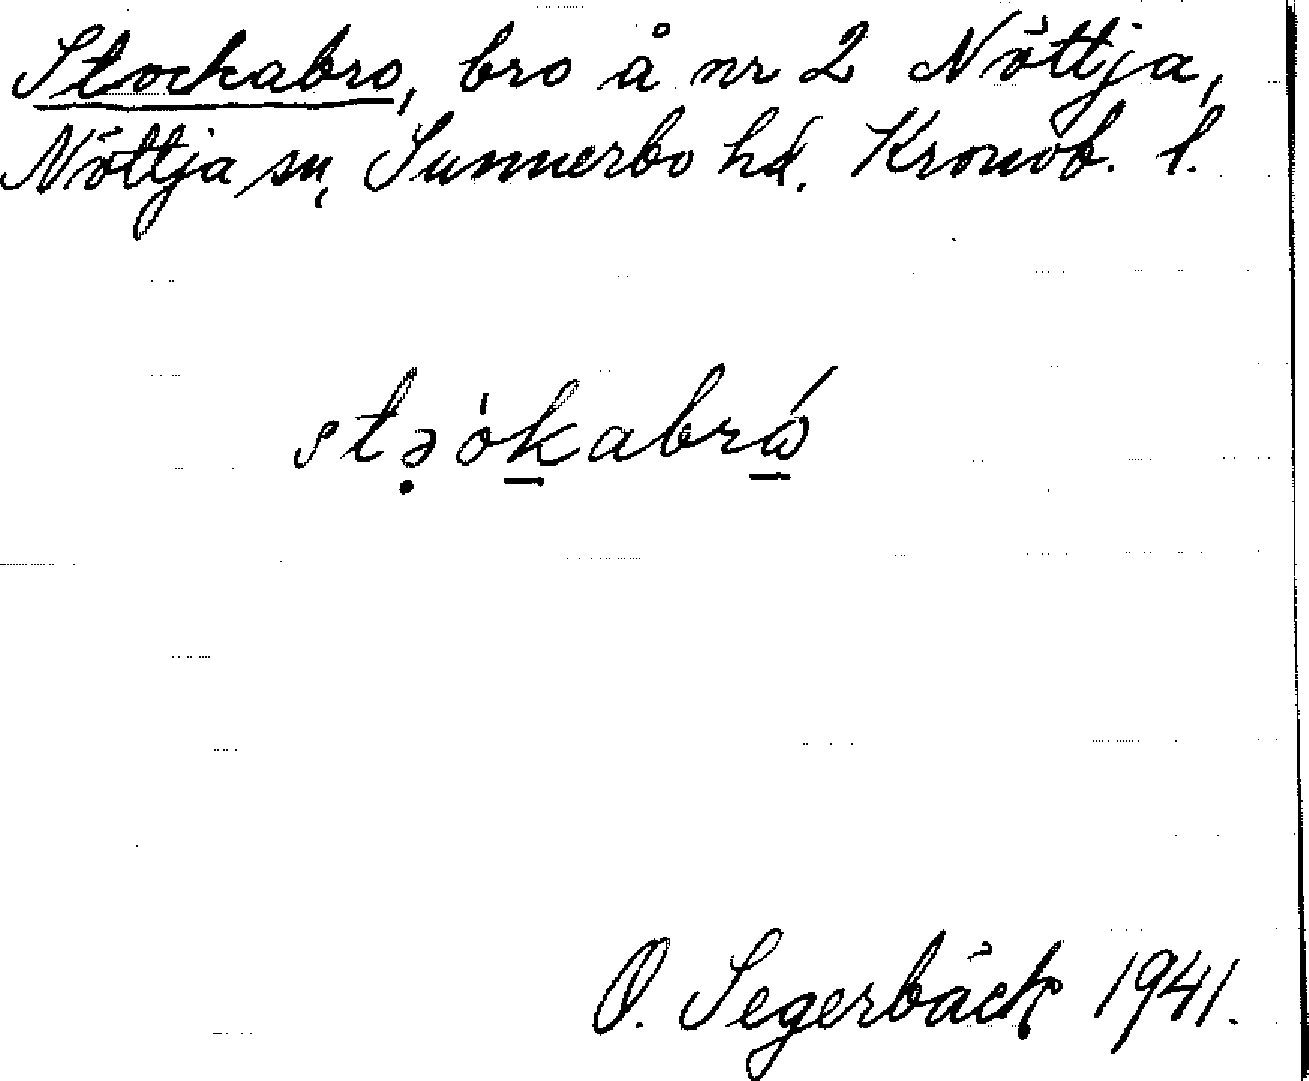 Stockabro, bro å nr 2 Nöttja,
Nöttja sn, Sunnerbo hd. Kronob. l.
stə̣ókabrǻ
O. Segerbäck 1941.